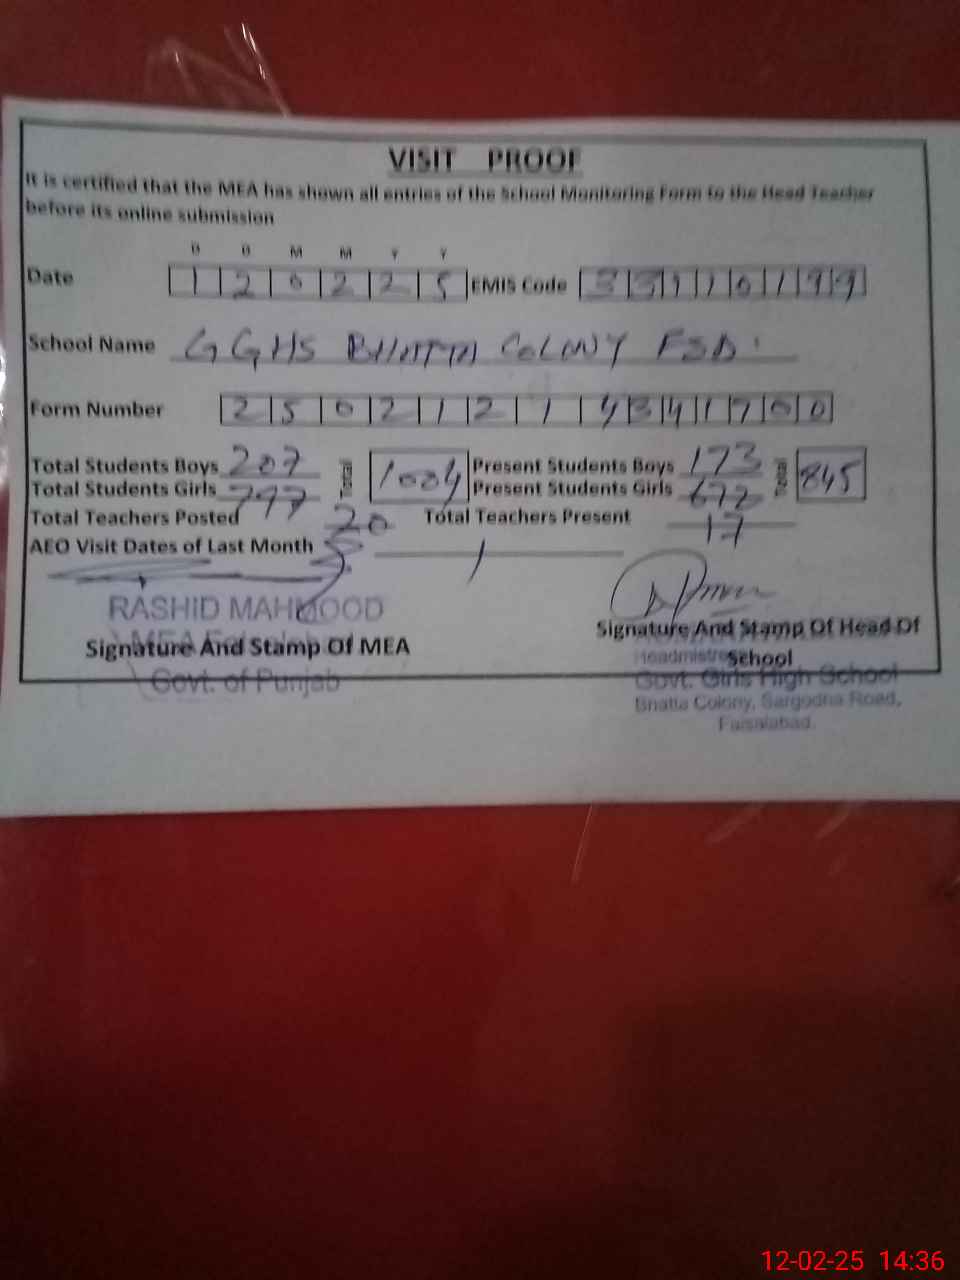 VISIT PROOF
It is certified that the MEA has shown all entries of the School Monitoring Form to the Head Teacher
before its online submission
D D M M Y Y
Date 1 2 0 2 2 5 EMIS Code 3 3 1 1 0 1 9 9
School Name GGHS BHATTA COLONY FSD
Form Number 2 5 0 2 1 2 1 4 3 4 1 7 0 0
Total Students Boys 207 Total 1004 Present Students Boys 173 Total 845
Total Students Girls 797 Present Students Girls 672
Total Teachers Posted 20 Total Teachers Present 17
AEO Visit Dates of Last Month
RASHID MAHMOOD
Signature And Stamp Of MEA
Govt. of Punjab
Signature And Stamp Of Head Of
School
Headmistress
Govt. Girls High School
Bhatta Colony, Sargodha Road,
Faisalabad.
12-02-25 14:36